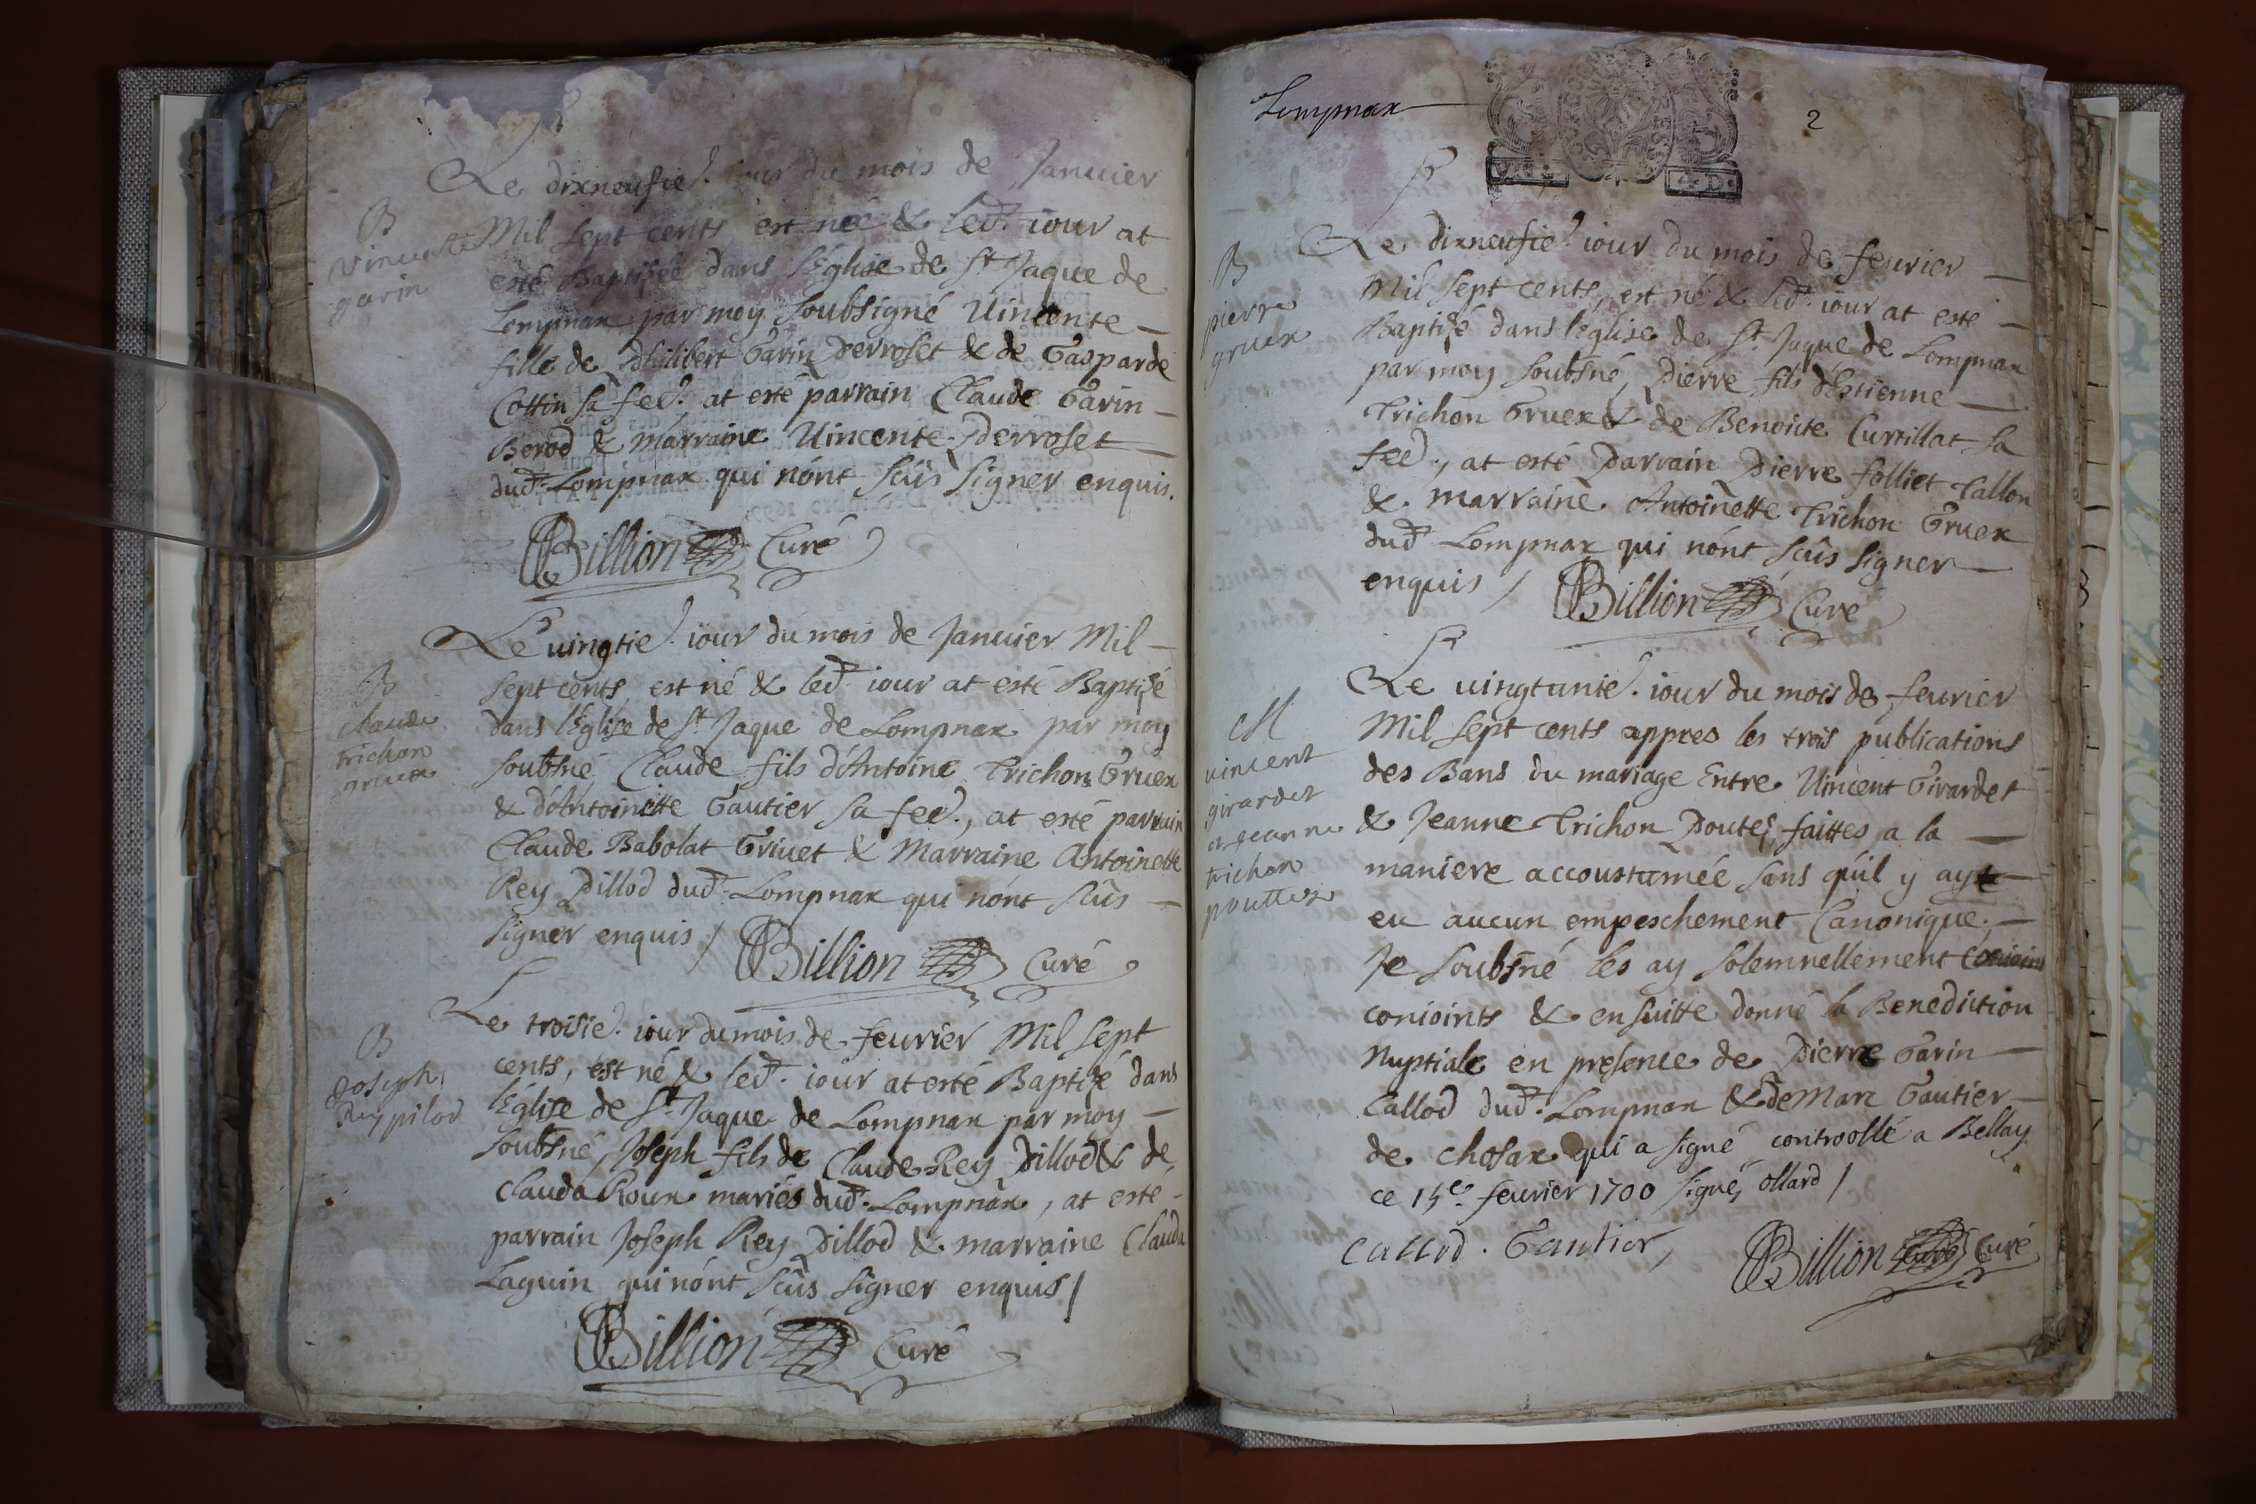 Le dixneufie. jour du mois de Januier
B
Vincente
garin
Mil sept cents est née & led. iour at
esté Baptisée dans l'Eglise de St Jaque de
Lompnax par moy soubsigné Uincente
fille de Philibert Garin Perroset & de Gasparde
Cottin sa fee. at esté parrain Claude Garin
Berod & marraine Uincente Perroset
dud. Lompnax qui nónt scûs signer enquis.
Billion Curé
Le uingtie. iour du mois de Januier Mil
B
claude
trichon
gruex
sept cents est né & led. iour at esté Baptisé
dans l'Eglise de St Jaque de Lompnax par moy
soubsné Claude fils d'Antoine Trichon Gruex
& d'Antoinette Gautier sa fee., at esté parrain
Claude Babolat Griuet & Marraine Antoinette
Rey Pillod dud. Lompnax qui nónt scûs
signer enquis / Billion Curé
Le troisie. iour du mois de feurier Mil sept
B
Joseph
Rey pilod
cents, est né & led. iour at esté Baptisé dans
l'Eglise de St Jaque de Lompnax par moy
soubsné, Joseph fils de Claude Rey Pillod & de
Clauda Roux mariés dud. Lompnax, at esté
parrain Joseph Rey Pillod & marraine Clauda
Laguin qui nónt scûs signer enquis /
Billion Curé
Lompnax
2
Le dixneufie. iour du mois de feurier
B
pierre
gruex
Mil sept cents, est né & led. iour at esté
Baptisé dans l'eglise de St Jaque de Lompnax
par moy soubsné, Pierre fils d'Estienne
Trichon Gruex & de Benoite Curtillat sa
fee., at esté Parrain Pierre folliet Tallon
& marraine Antoinette Trichon Gruex
dud Lompnax qui nónt scûs signer
enquis / Billion Curé
Le uingtunie. iour du mois de feurier
M
vincent
girardet
et jeanne
trichon
pouttes
Mil sept cents appres les trois publications
des Bans du mariage Entre Uincent Girardet
& Jeanne Trichon Poutes, faittes a la
maniere accoustumée sans qu'il y ayt
eu aucun empeschement Canonique
Je soubsné les ay solemnellement
conioints & ensuitte donné la Benediction
Nuptiale en presence de Pierre Garin
Callod dud. Lompnax & de Marc Gautier
de chosax qui a signé controollé a Bellay
ce 15e. feurier 1700 signé, ollard /
Callod . Gautier,
Billion Curé